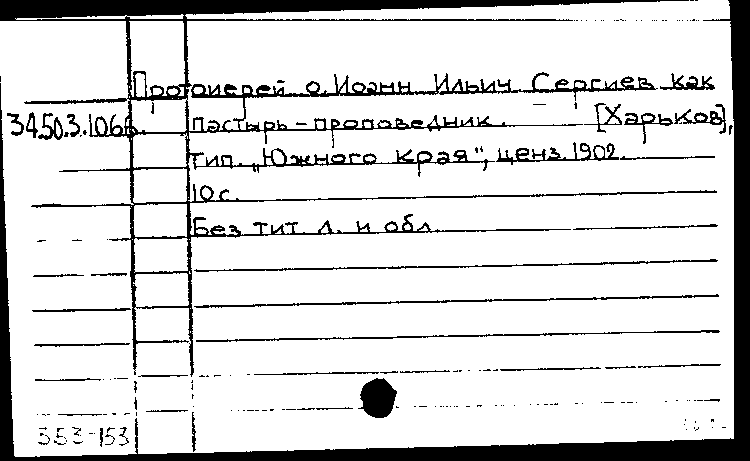 Протоиерей о. Иоанн Ильич Сергиев как
34.50.3.1066. пастырь-проповедник. [Харьков],
тип. „Южного края“, ценз. 1902.
10 с.
Без тит. л. и обл.
353-153